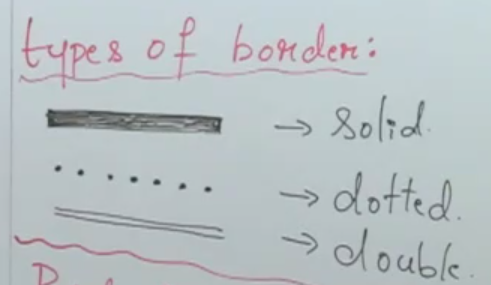 types of border:
→ solid.
→ dotted.
→ double.